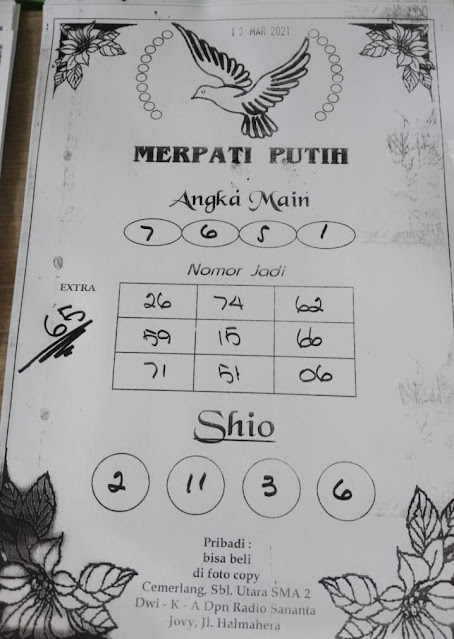 13 MAR 2021
MERPATI PUTIH
Angka Main
7 6 5 1
Nomor Jadi
EXTRA
65
26 74 62
59 15 66
71 51 06
Shio
2 11 3 6
Pribadi :
bisa beli
di foto copy
Cemerlang, Sbl. Utara SMA 2
Dwi - K - A Dpn Radio Sananta
Jovy, Jl. Halmahera